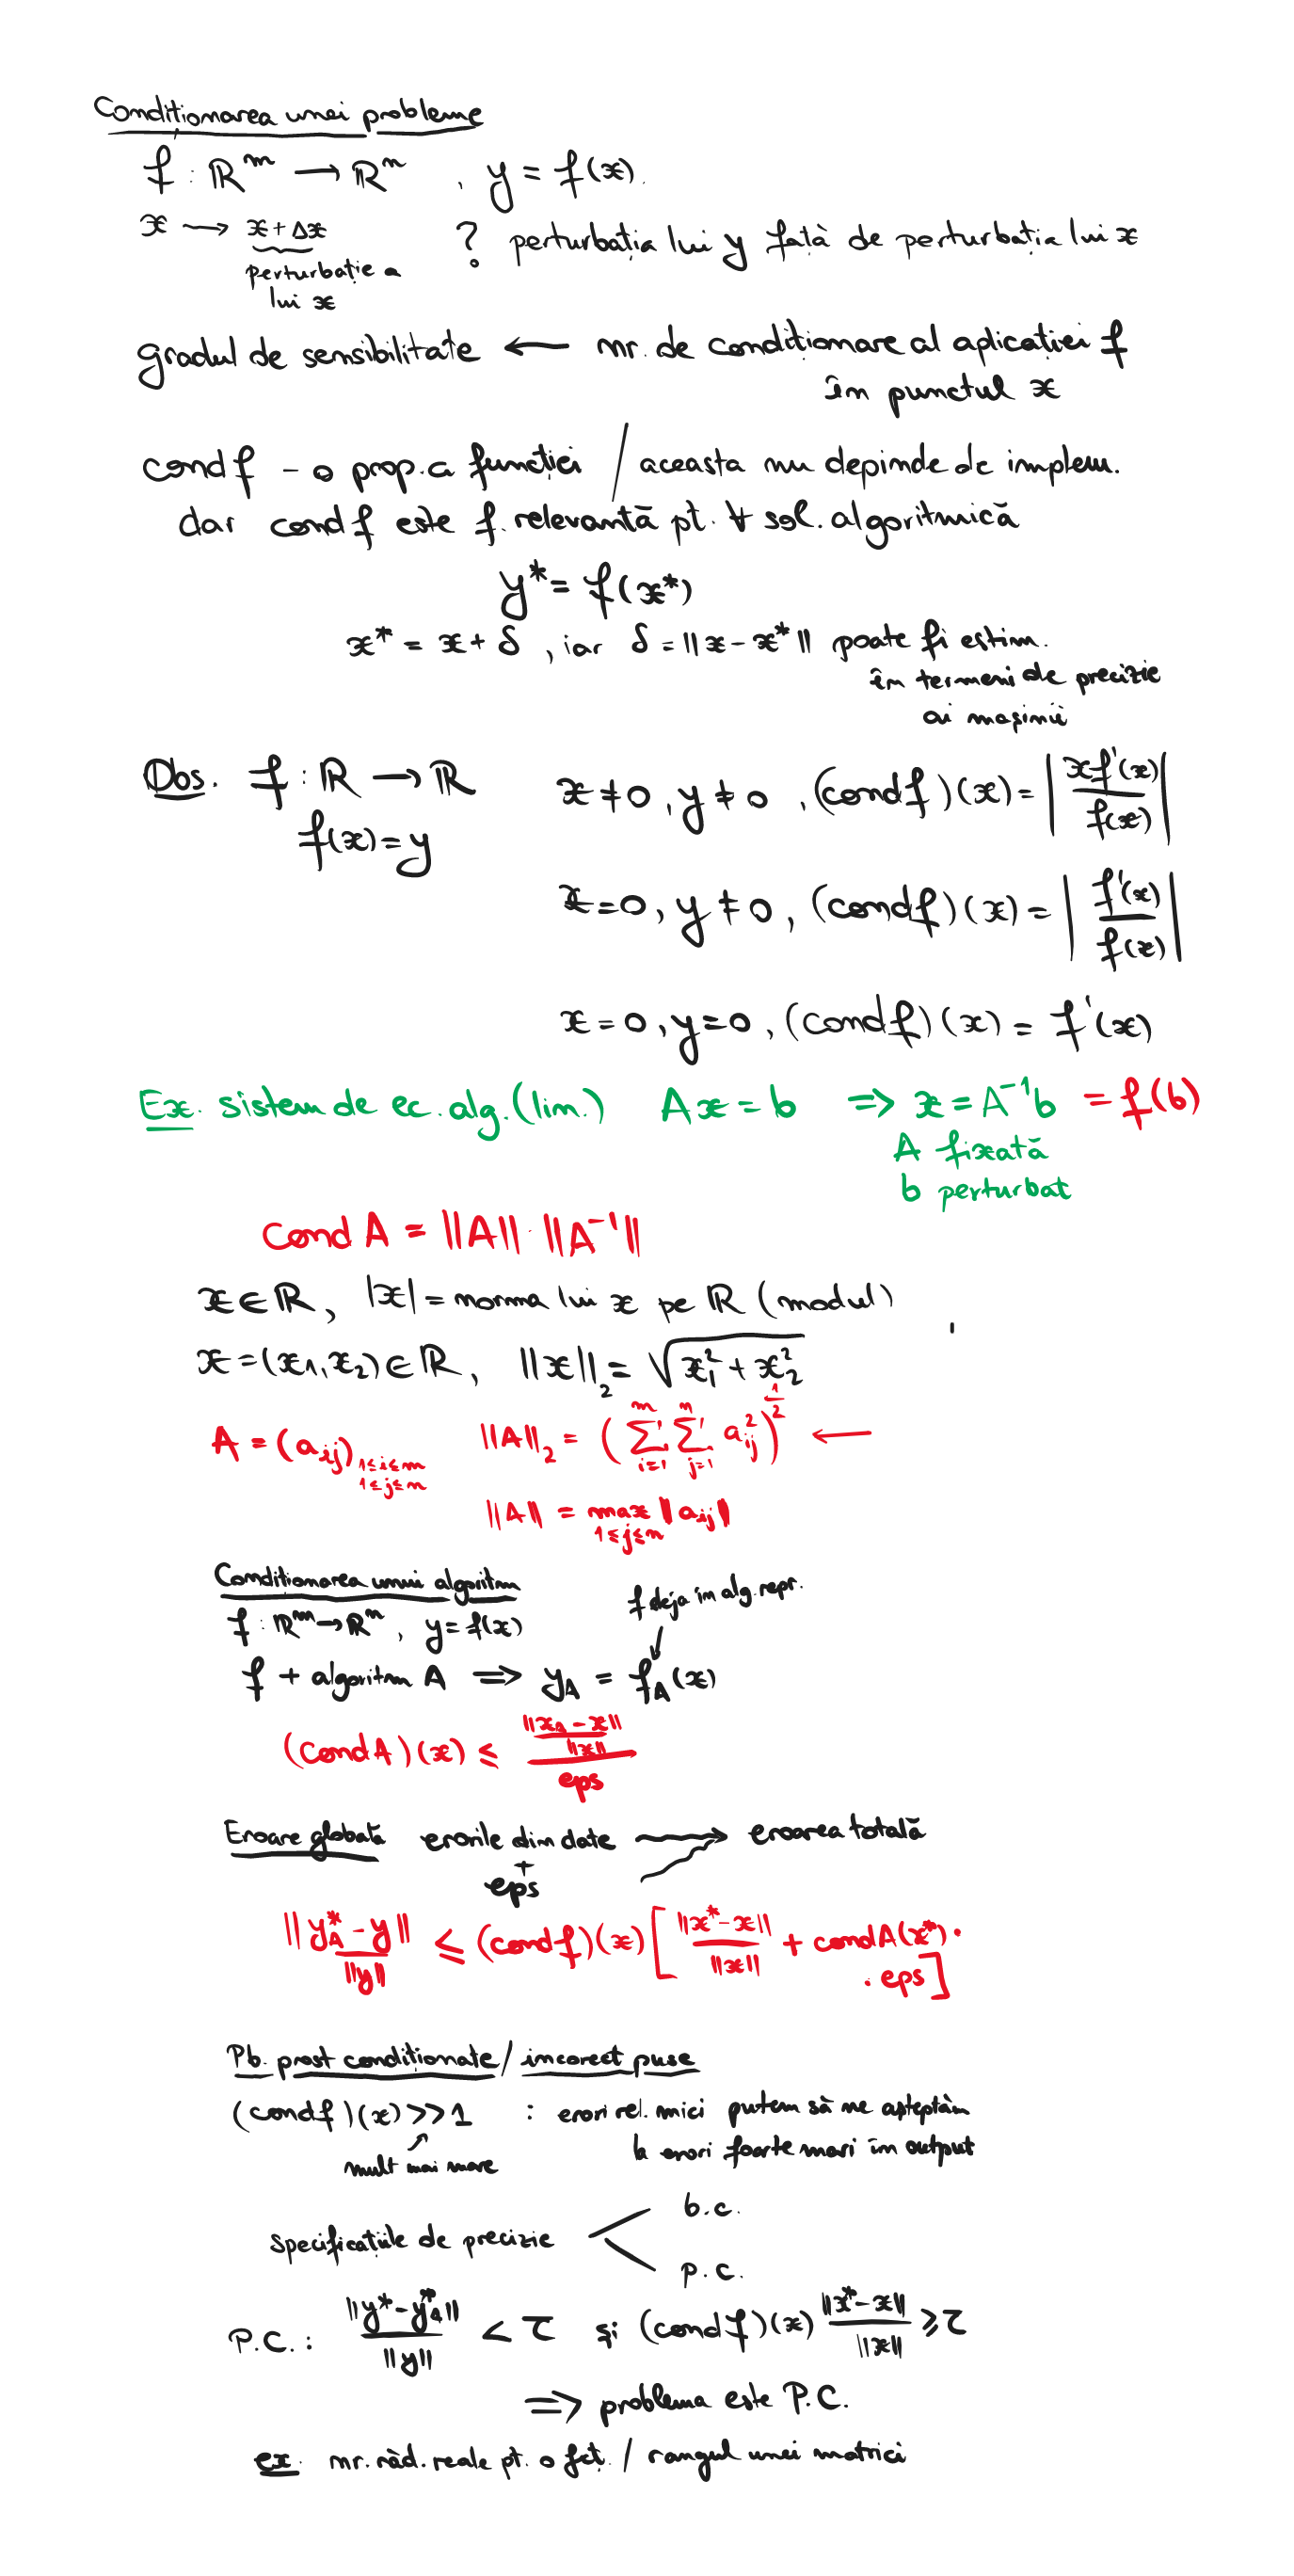 Condiționarea unei probleme
f : ℝᵐ → ℝⁿ , y = f(x).
x → x + Δx ? perturbația lui y față de perturbația lui x
perturbație a
lui x
gradul de sensibilitate ← nr. de condiționare al aplicației f
în punctul x
cond f – o prop. a funcției / aceasta nu depinde de implem.
dar cond f este f. relevantă pt. ∀ sol. algoritmică
y* = f(x*)
x* = x + δ , iar δ = ||x – x*|| poate fi estim.
în termeni de precizie
ai mașinii
Obs. f : ℝ → ℝ x ≠ 0, y ≠ 0, (cond f)(x) = |xf'(x) / f(x)|
f(x) = y
x = 0, y ≠ 0, (cond f)(x) = |f'(x) / f(x)|
x = 0, y = 0, (cond f)(x) = f'(x)
Ex. sistem de ec. alg. (lin.) Ax = b ⇒ x = A⁻¹b = f(b)
A fixată
b perturbat
cond A = ||A|| · ||A⁻¹||
x ∈ ℝ, |x| = norma lui x pe ℝ (modul)
x = (x₁, x₂) ∈ ℝ, ||x||₂ = √(x₁² + x₂²)
A = (aᵢⱼ) 1≤i≤m 1≤j≤n ||A||₂ = (∑ᵢ₌₁ᵐ ∑ⱼ₌₁ⁿ aᵢⱼ²)^(1/2) ←
||A|| = max 1≤j≤n ||aᵢⱼ||
Condiționarea unui algoritm
f deja în alg. repr.
f : ℝᵐ → ℝⁿ, y = f(x)
f + algoritm A ⇒ y_A = f_A(x)
(cond A)(x) ≤ (||x_A – x|| / ||x||) / eps
Eroare globală erorile din date → eroarea totală
+
eps
||y*_A – y|| / ||y|| ≤ (cond f)(x) [ ||x* – x|| / ||x|| + cond A(x*) ·
· eps ]
Pb. prost condiționate / incorect puse
(cond f)(x) >> 1 : erori rel. mici putem să ne așteptăm
mult mai mare la erori foarte mari în output
b.c.
specificațiile de precizie
p.c.
P.C. : ||y* – y*_A|| / ||y|| < τ și (cond f)(x) ||x* – x|| / ||x|| ≥ τ
⇒ problema este P.C.
ex. nr. răd. reale pt. o fct. / rangul unei matrici